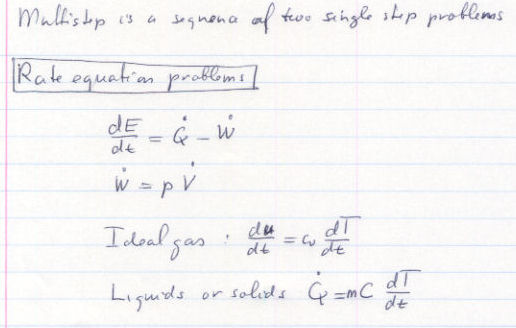 Multistep is a sequence of two single step problems
Rate equation problems
dE/dt = Q̇ - Ẇ
Ẇ = p V̇
Ideal gas : du/dt = cv dT/dt
Liquids or solids Q̇ = mC dT/dt